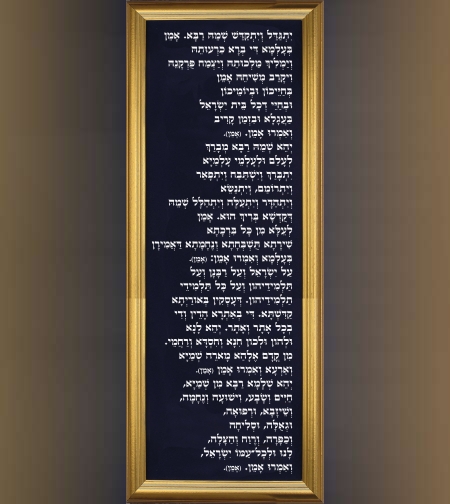 יִתְגַּדַּל וְיִתְקַדַּשׁ שְׁמֵהּ רַבָּא. אָמֵן
בְּעָלְמָא דִּי בְרָא כִרְעוּתֵהּ
וְיַמְלִיךְ מַלְכוּתֵהּ וְיַצְמַח פֻּרְקָנֵהּ
וִיקָרֵב מְשִׁיחֵהּ אָמֵן
בְּחַיֵּיכוֹן וּבְיוֹמֵיכוֹן
וּבְחַיֵּי דְכָל בֵּית יִשְׂרָאֵל
בַּעֲגָלָא וּבִזְמַן קָרִיב
וְאִמְרוּ אָמֵן. (אָמֵן).
יְהֵא שְׁמֵהּ רַבָּא מְבָרַךְ
לְעָלַם וּלְעָלְמֵי עָלְמַיָּא
יִתְבָּרַךְ וְיִשְׁתַּבַּח וְיִתְפָּאַר
וְיִתְרוֹמַם, וְיִתְנַשֵּׂא
וְיִתְהַדָּר וְיִתְעַלֶּה וְיִתְהַלָּל שְׁמֵהּ
דְּקֻדְשָׁא בְּרִיךְ הוּא. אָמֵן
לְעֵלָּא מִן כָּל בִּרְכָתָא
שִׁירָתָא תֻּשְׁבְּחָתָא וְנֶחֱמָתָא דַּאֲמִירָן
בְּעָלְמָא וְאִמְרוּ אָמֵן: (אָמֵן).
עַל יִשְׂרָאֵל וְעַל רַבָּנָן וְעַל
תַּלְמִידֵיהוֹן וְעַל כָּל תַּלְמִידֵי
תַלְמִידֵיהוֹן. דְּעָסְקִין בְּאוֹרַיְתָא
קַדִּשְׁתָּא. דִּי בְאַתְרָא הָדֵין וְדִי
בְכָל אֲתַר וַאֲתַר. יְהֵא לָנָא
וּלְהוֹן וּלְכוֹן חִנָּא וְחִסְדָּא וְרַחֲמֵי.
מִן קֳדָם אֱלָהָא מָארֵה שְׁמַיָּא
וְאַרְעָא וְאִמְרוּ אָמֵן (אָמֵן).
יְהֵא שְׁלָמָא רַבָּא מִן שְׁמַיָּא,
חַיִּים וְשָׂבָע, וִישׁוּעָה וְנֶחָמָה,
וְשֵׁיזָבָא, וּרְפוּאָה,
וּגְאֻלָּה, וּסְלִיחָה
וְכַפָּרָה, וְרֶוַח וְהַצָּלָה,
לָנוּ וּלְכָל־עַמּוֹ יִשְׂרָאֵל,
וְאִמְרוּ אָמֵן. (אָמֵן).